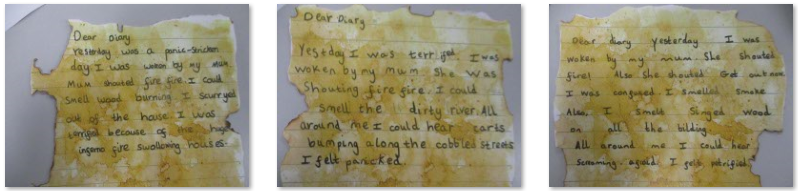 Dear Diary
Yesterday was a panic-stricken
day. I was woken by my mum
Mum shouted fire fire. I could
smell wood burning. I scurryed
out of the house. I was
terrified because of the huge
inferno fire swallowing houses.
Dear Diary
Yestday I was terrifyed. I was
woken by my mum She was
shouting fire fire. I could
smell the dirty river. All
around me I could hear carts
bumping along the cobbled streets
I felt panicked.
Dear diary yesterday I was
woken by my mum. She shouted
fire! Also she shouted Get out now
I was confused. I smelled smoke
Also, I smelt singed wood
on all the bilding
All around me I could hear
screaming. I felt petrified